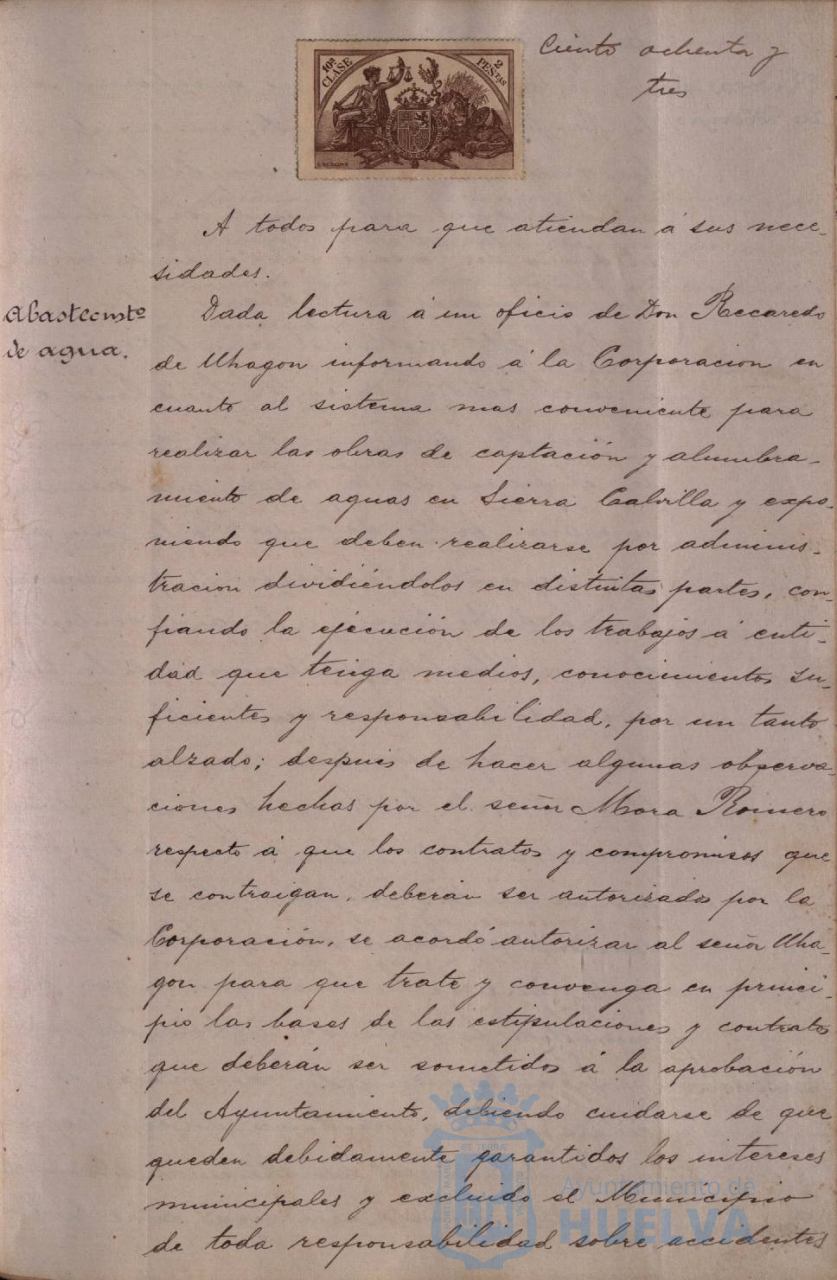 Ciento ochenta y
tres
10ª CLASE
2 PESTAS
A todos para que atiendan á sus nece-
sidades.
Abastecmto
de agua.
Dada lectura á un oficio de Don Recaredo
de Uhagon informando á la Corporacion en
cuanto al sistema mas conveniente para
realizar las obras de captación y alumbra-
miento de aguas en Sierra Calvilla y expo-
niendo que deben realizarse por adminis-
tracion dividiéndolos en distintas partes, con-
fiando la ejecución de los trabajos á enti-
dad que tenga medios, conocimientos su-
ficientes y responsabilidad, por un tanto
alzado; después de hacer algunas observa-
ciones hechas por el señor Mora Romero
respecto á que los contratos y compromisos que
se contraigan, deberán ser autorizados por la
Corporación, se acordó autorizar al señor Uha-
gon para que trate y convenga en princi-
pio las bases de las estipulaciones y contratos
que deberán ser sometidos á la aprobación
del Ayuntamiento, debiendo cuidarse de que
queden debidamente garantidos los intereses
municipales y excluido el Municipio
de toda responsabilidad sobre accidentes
Ayuntamiento de
HUELVA